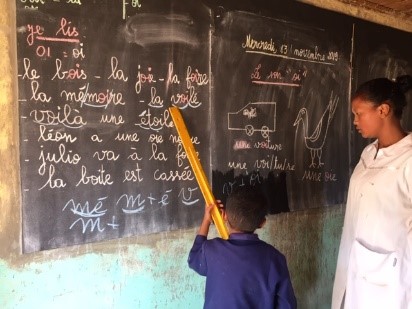 je lis
oi = oi
le bois - la joie - la foire
- la mémoire - la voile
- voilà une étoile
- léon a une oie noire
- julio va à la foire
la boite est cassée
mé m + é v
m +
Mercredi, 13 novembre 2019
Le son "oi"
une voiture
une voi/tu/re
une oie